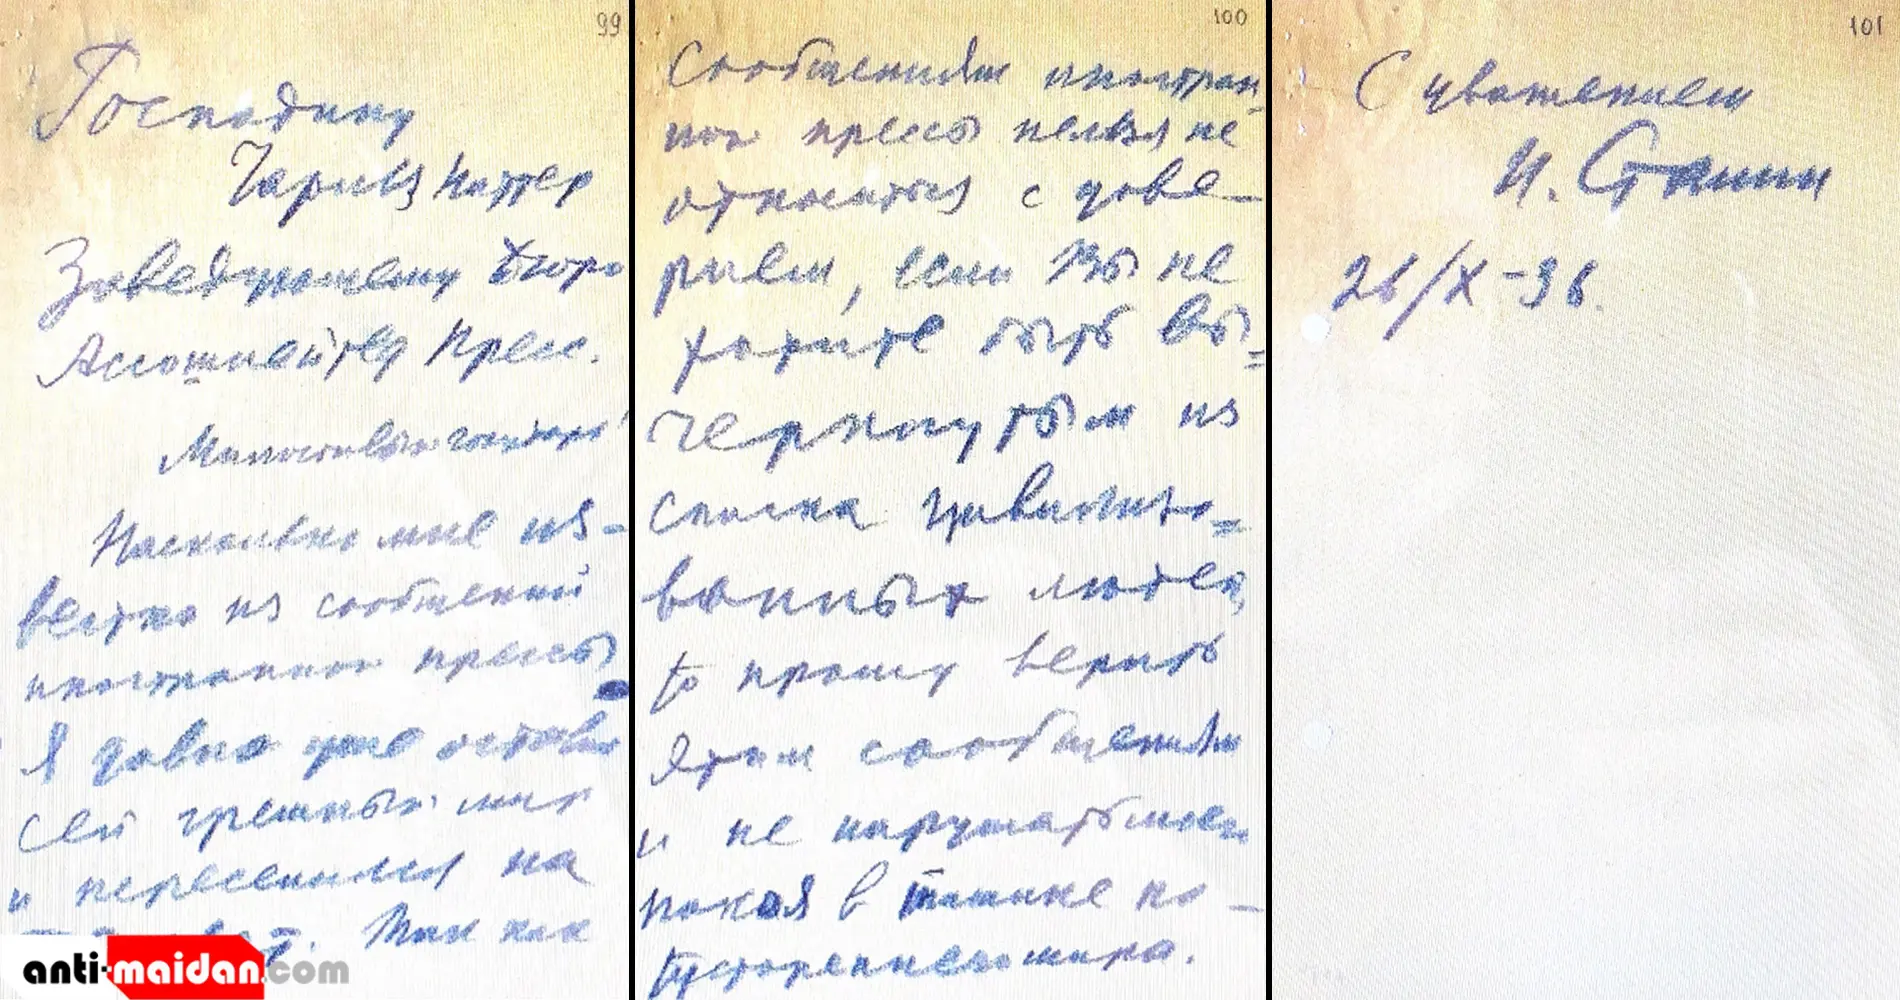 99
Господину
Чарльз Наттер
Заведующему Бюро
Ассошиейтед Пресс.
Милостивый государь!
Насколько мне из-
вестно из сообщений
иностранной прессы
я давно уже оставил
сей грешный мир
и переселился на
Так как
anti-maidan.com
100
сообщениям иностран-
ной прессы нельзя не
относиться с дове-
рием, если Вы не
хотите быть вы=
черкнутым из
списка цивилизо=
ванных людей,
то прошу верить
этим сообщениям
и не нарушать моего
покоя в тишине по-
тустороннего мира.
101
С уважением
И. Сталин
26/X-36.